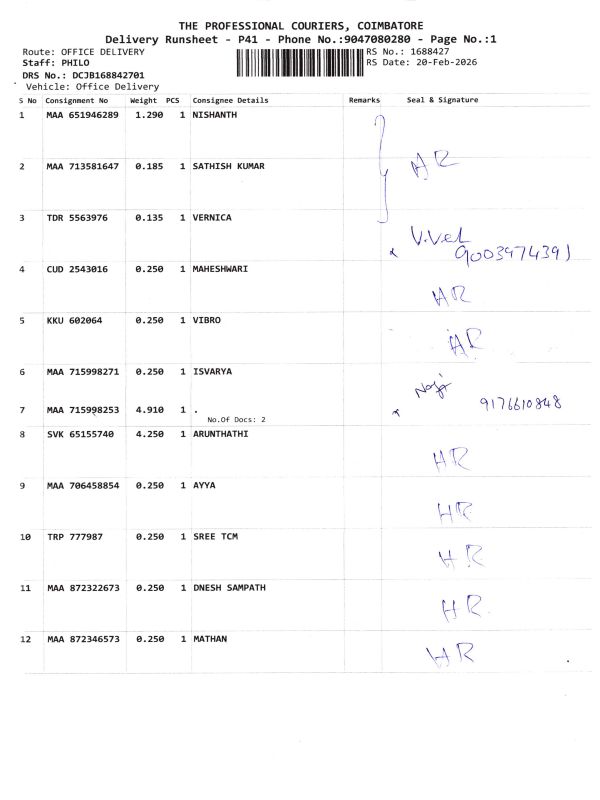 THE PROFESSIONAL COURIERS, COIMBATORE
Delivery Runsheet - P41 - Phone No.:9047080280 - Page No.:1
Route: OFFICE DELIVERY RS No.: 1688427
Staff: PHILO RS Date: 20-Feb-2026
DRS No.: DCJB168842701
Vehicle: Office Delivery
S No Consignment No Weight PCS Consignee Details Remarks Seal & Signature
1 MAA 651946289 1.290 1 NISHANTH
2 MAA 713581647 0.185 1 SATHISH KUMAR HR
3 TDR 5563976 0.135 1 VERNICA
V.Vel
9003974391
4 CUD 2543016 0.250 1 MAHESHWARI
HR
5 KKU 602064 0.250 1 VIBRO
HR
6 MAA 715998271 0.250 1 ISVARYA
9176610848
7 MAA 715998253 4.910 1 .
No.Of Docs: 2
8 SVK 65155740 4.250 1 ARUNTHATHI
HR
9 MAA 706458854 0.250 1 AYYA
HR
10 TRP 777987 0.250 1 SREE TCM
HR
11 MAA 872322673 0.250 1 DNESH SAMPATH
HR
12 MAA 872346573 0.250 1 MATHAN
HR